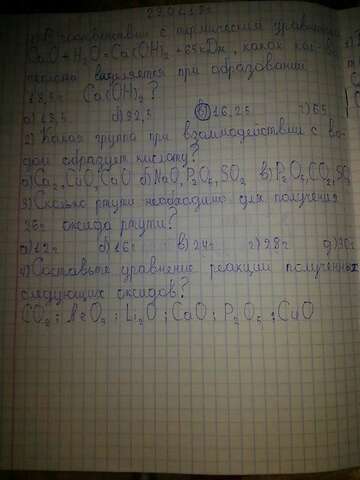 1) В соответствии с термическим уравнением
CaO + H₂O = Ca(OH)₂ + 65 кДж, какое кол-во
теплоты выделяется при образовании
18,5г Ca(OH)₂?
а) 18,5 б) 32,5 в) 16,25 г) 65
2) Какая группа при взаимодействии с во-
дой образует кислоту?
CuO, CaO б) NaO, P₂O₅, SO₂ в) P₂O₅, CO₂, SO₂
3) Сколько ртути необходимо для получения
26г оксида ртути?
а) 12г б) 16г в) 24г г) 28г д) 30г
4) Составьте уравнение реакции полученных
следующих оксидов?
CO₂; Li₂O; CaO; P₂O₅; CuO